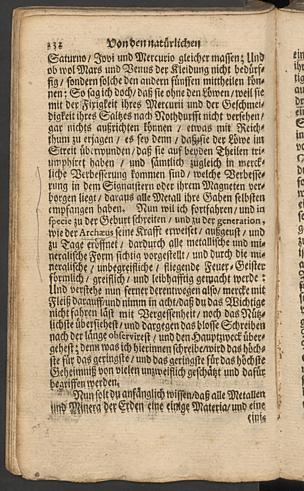 232 Von den natürlichen
Saturno/ Jovi und Mercurio gleicher massen; Und
ob wol Mars und Venus der Kleidung nicht bedürf-
tig/ sondern solche den andern fünffen mittheilen kön-
nen: So sag ich doch/ daß sie ohne den Löwen/ weil sie
mit der Fixigkeit ihres Mercurii und der Geschmei-
digkeit ihres Saltzes nach Nothdurfft nicht versehen/
gar nichts außrichten können/ etwas mit Reich-
thum zu erjagen/ es sey denn/ daß sie der Löwe im
Streit überwunden/ daß sie auf beyden Theilen tri-
umphiret haben/ und sämtlich zugleich in merck-
liche Verbesserung kommen sind/ welche Verbesse-
rung in dem Signastern oder ihrem Magneten ver-
borgen liegt/ daraus alle Metall ihre Gaben selbsten
empfangen haben. Nun wil ich fortfahren/ und in
specie zu der Geburt schreiten/ und zu der generation,
wie der Archæus seine Krafft erweiset/ außgeust/ und
zu Tage eröffnet/ dardurch alle metallische und mi-
neralische Form sichtig vorgestellt/ und durch die mi-
neralische/ unbegreifliche/ fliegende Feuer-Geister
förmlich/ greiflich/ und leibhafftig gemacht werde:
Und verstehe nun ferner derentwegen also/ mercke mit
Fleiß darauff und nimm in acht/ daß du das Wichtige
nicht fahren läst mit Vergessenheit/ noch das Nütz-
lichste übersiehest/ und dargegen das blosse Schreiben
nach der länge observirest/ und den Hauptzweck über-
gehest; denn was ich hierinnen schreibe/ wird das höch-
ste für das geringste/ und das geringste für das höchste
Geheimniß von vielen unzweiflich geschätzt und dafür
begriffen werden.
Nun solt du anfänglich wissen/ daß alle Metallen
und Minera der Erden eine einige Materia/ und eine
einige